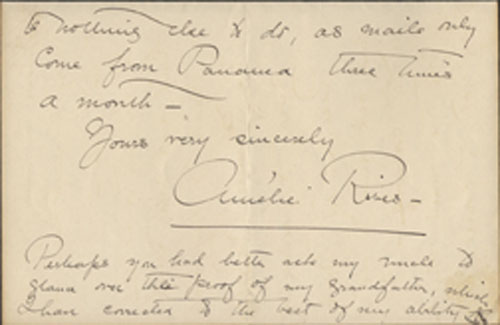 & nothing else to do, as mails only
Come from Panama three times
a month –
Yours very sincerely
Amélie Rives –
Perhaps you had better ask my uncle to
glance over this proof of my grandfather, which
I have corrected to the best of my ability